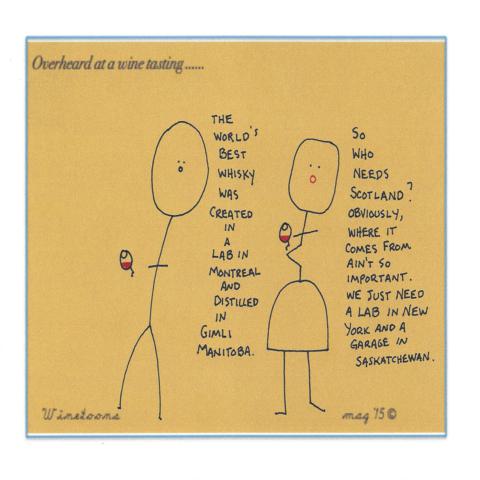 Overheard at a wine tasting......
THE
WORLD'S
BEST
WHISKY
WAS
CREATED
IN
A
LAB IN
MONTREAL
AND
DISTILLED
IN
GIMLI
MANITOBA.
SO
WHO
NEEDS
SCOTLAND?
OBVIOUSLY,
WHERE IT
COMES FROM
AIN'T SO
IMPORTANT.
WE JUST NEED
A LAB IN NEW
YORK AND A
GARAGE IN
SASKATCHEWAN.
Winetoons
mag '15 ©